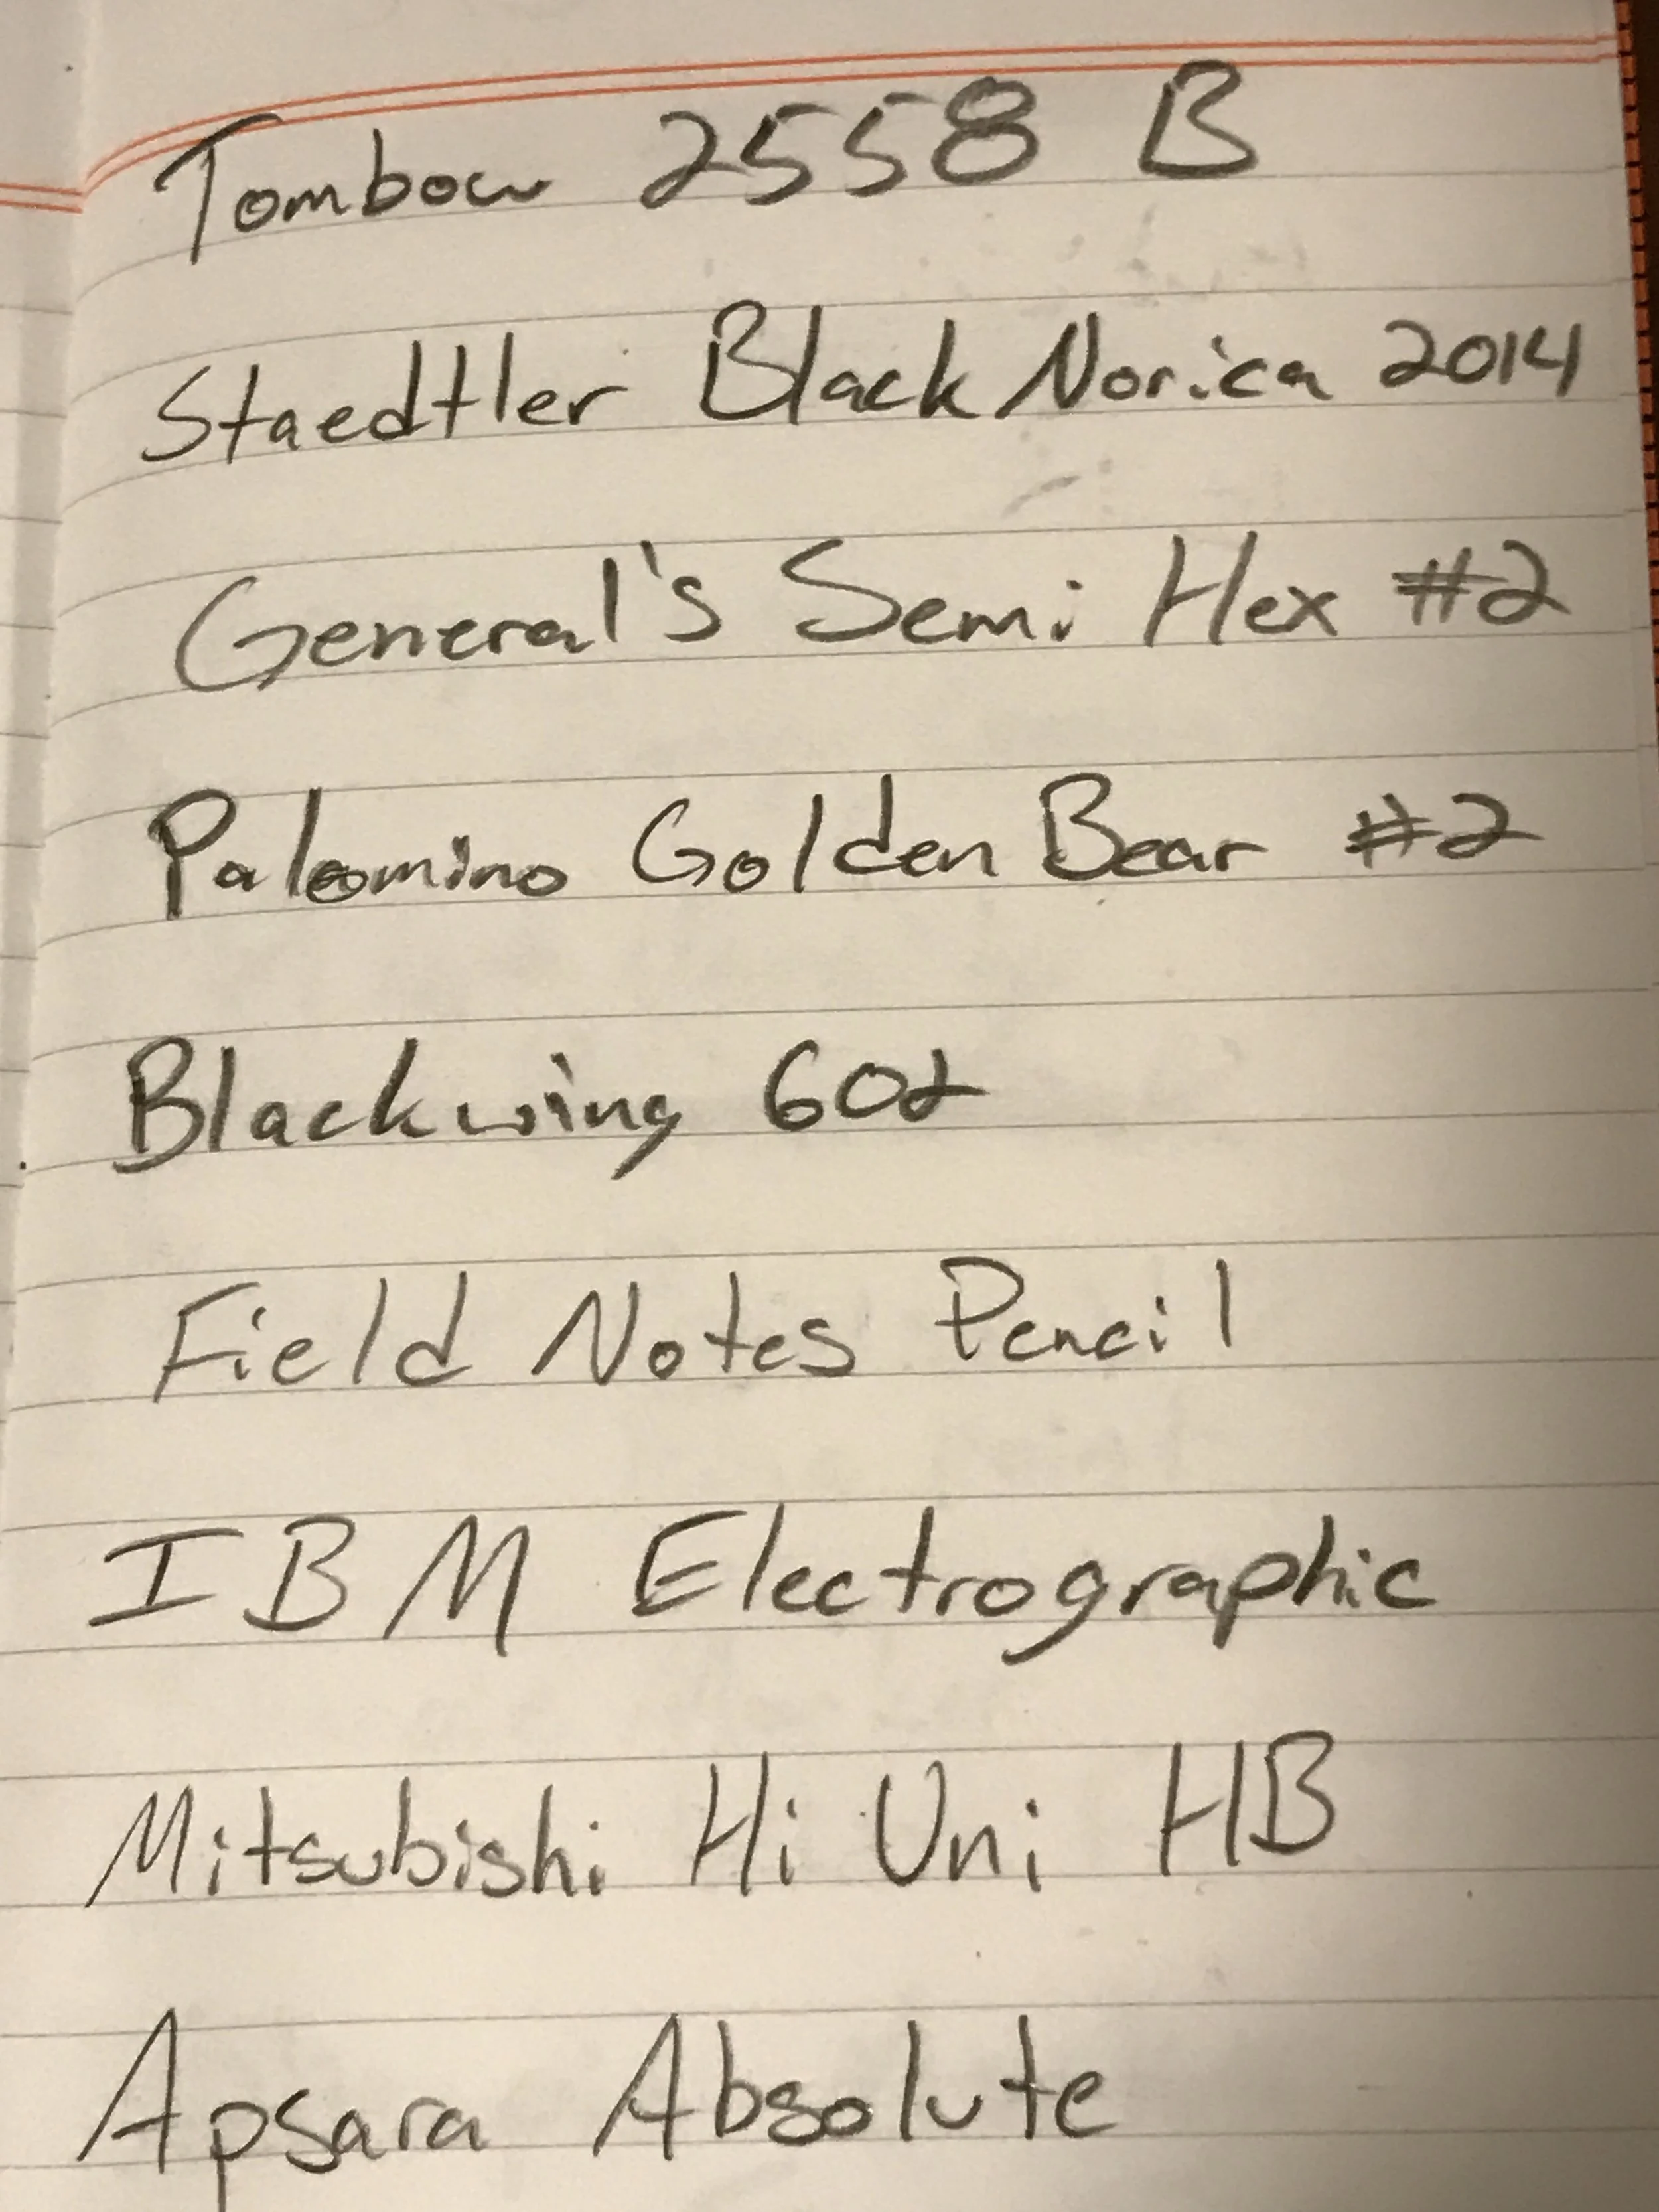 Tombow 2558 B
Staedtler Black Norica 2014
General's Semi Hex #2
Palomino Golden Bear #2
Blackwing 602
Field Notes Pencil
IBM Electrographic
Mitsubishi Hi Uni HB
Apsara Absolute